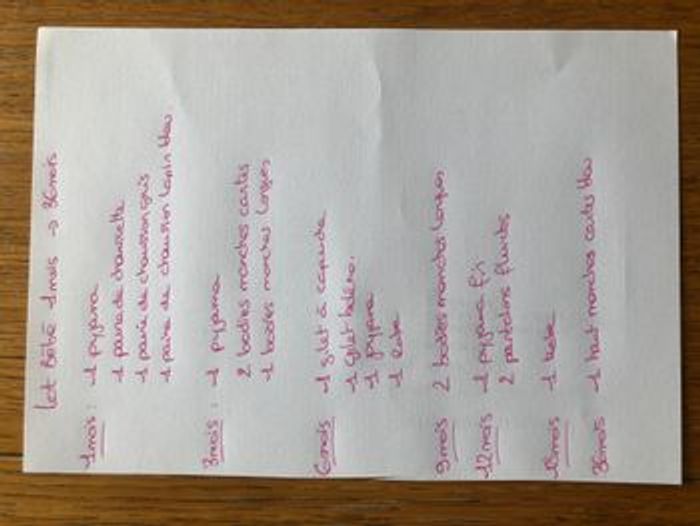 Lot Bébé 1 mois -> 36 mois
1 mois : - 1 pyjama
- 1 paire de chaussette
- 1 paire de chausson gris
- 1 paire de chausson lapin bleu
3 mois : - 1 pyjama
2 bodies manches courtes
- 1 bodies manches longues
6 mois - 1 gilet à capuche
- 1 gilet boléro.
- 1 pyjama
- 1 robe
9 mois 2 bodies manches longues
12 mois - 1 pyjama
2 pantalons fluides
18 mois - 1 robe
36 mois - 1 haut manches courtes bleu